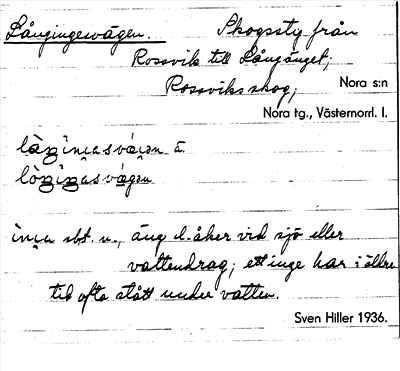 Långingevägen. Skogsstg från
Rossvik till Långänget;
Rossviks skog; Nora s:n
Nora tg., Västernorrl. l.
i
inga sbt. n., äng l. åker vid sjö eller
vattendrag; ett inge har i äldre
tid ofta stått under vatten.
Sven Hiller 1936.